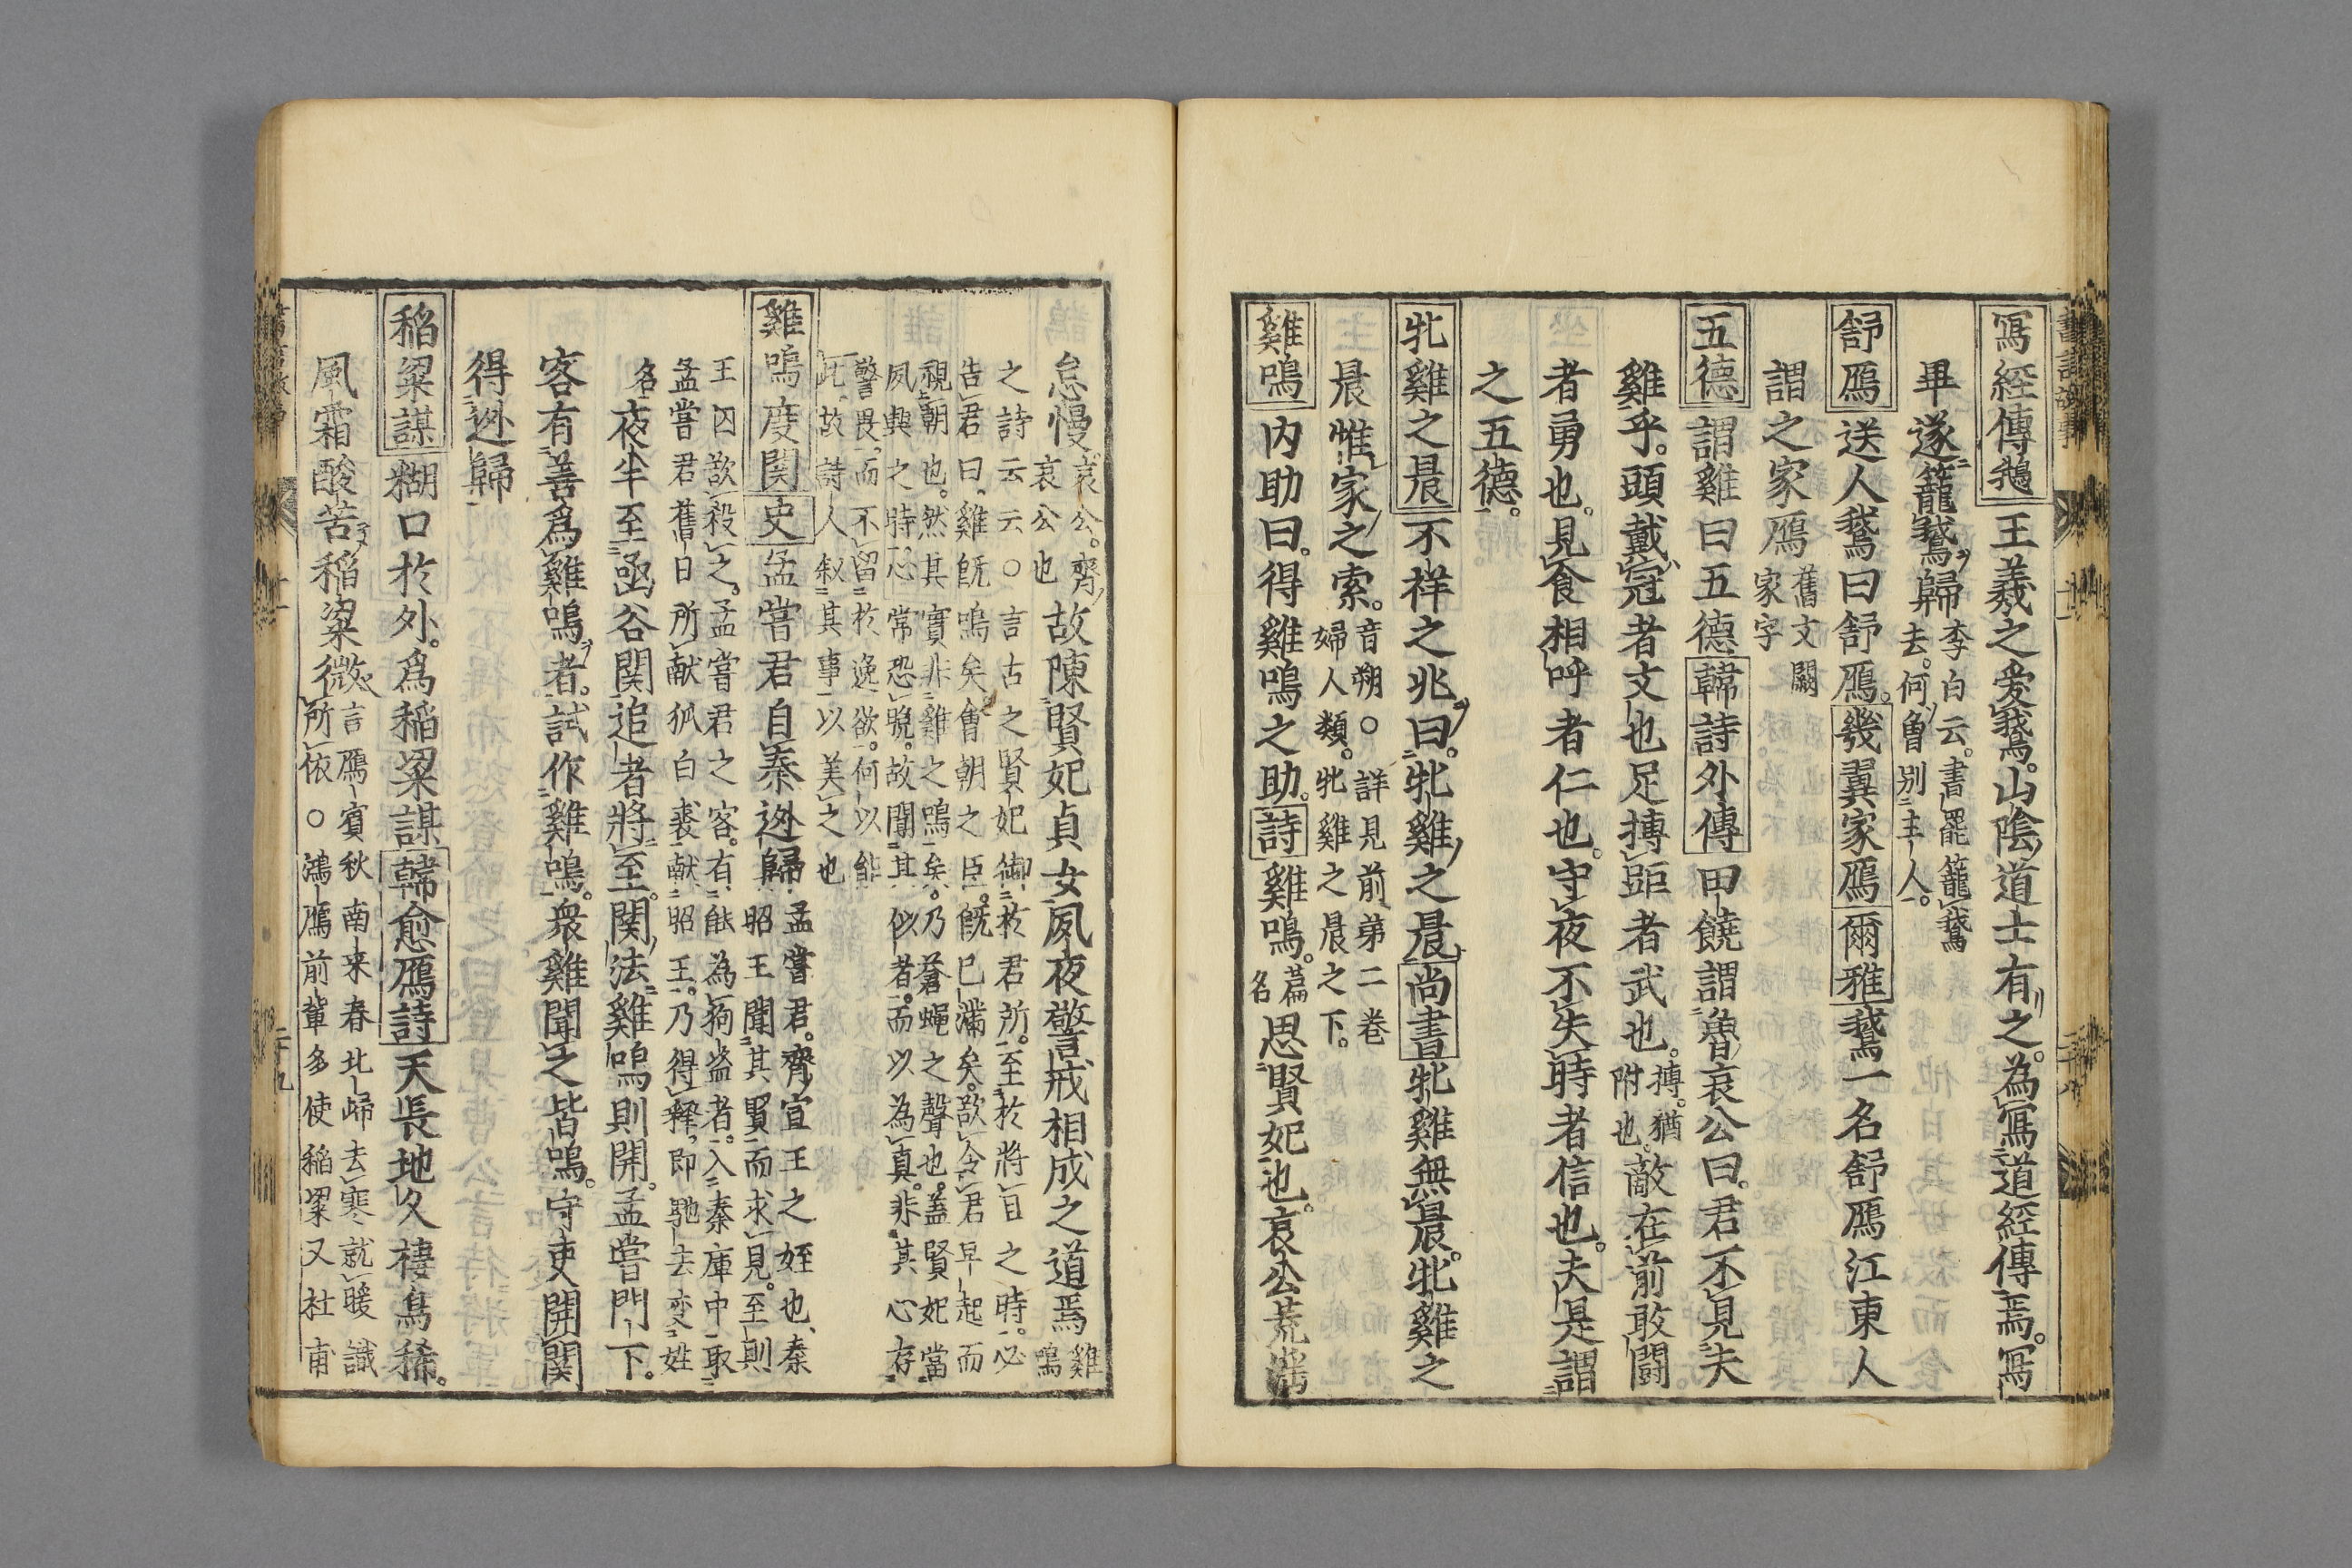 寫經傳鵝 王羲之愛鵞。山陰道士有之。為寫道經傳焉。寫經
畢遂籠鵞歸 李白云。書罷籠鵞去。何曾別主人。
舒鴈 送人鵞曰舒鴈。幾翼家鴈 爾雅 鵞一名舒鴈江東人
謂之家鴈 舊文闕家字
五德 謂雞曰五德 韓詩外傳 田饒謂魯哀公曰。君不見夫
雞乎。頭戴冠者文也足搏距者武也。搏。猶附也。敵在前敢鬪
者勇也。見食相呼者仁也。守夜不失時者信也。夫是謂
之五德。
牝雞之晨 不祥之兆。曰。牝雞之晨 尚書 牝雞無晨。牝雞之
晨惟家之索。音朔○詳見前第二卷婦人類。牝雞之晨之下。
雞鳴 內助曰。得雞鳴之助。詩 雞鳴。篇名思賢妃也。哀公荒滛
怠慢。哀公。齊哀公也故陳賢妃貞女夙夜警戒相成之道焉 雞鳴
之詩云云○言古之賢妃御於君所。至於將旦之時。必
告君曰。雞旣鳴矣會朝之臣。旣已滿矣。欲令君早起而
視朝也。然其實非雞之鳴矣。乃蒼蠅之聲也。蓋賢妃當
夙興之時。心常恐晩。故聞其似者。而以為真。非其心存
警畏。而不留於逸欲。何以能
此。故詩人叙其事以美之也
雞鳴度関 史 孟嘗君自秦迯歸 孟嘗君。齊宣王之姪也、秦昭王聞其賢而求見。至則
王囚欲殺之。孟嘗君之客。有能為狗盜者。入秦庫中取
孟嘗君舊日所献狐白裘献昭王。乃得釋。即馳去変姓
名 夜半至凾谷関追者將至。関法雞鳴則開。孟嘗門下。
客有善爲雞鳴者。試作雞鳴。衆雞聞之皆鳴。守吏開関
得迯歸
稻粱謀 糊口於外。爲稻粱謀 韓愈鴈詩 天長地久棲鳥稀。
風霜酸苦稻粱微 言鴈賓秋南来春北歸去寒就暖識所依○鴻鴈前輩多使稻粱又杜甫